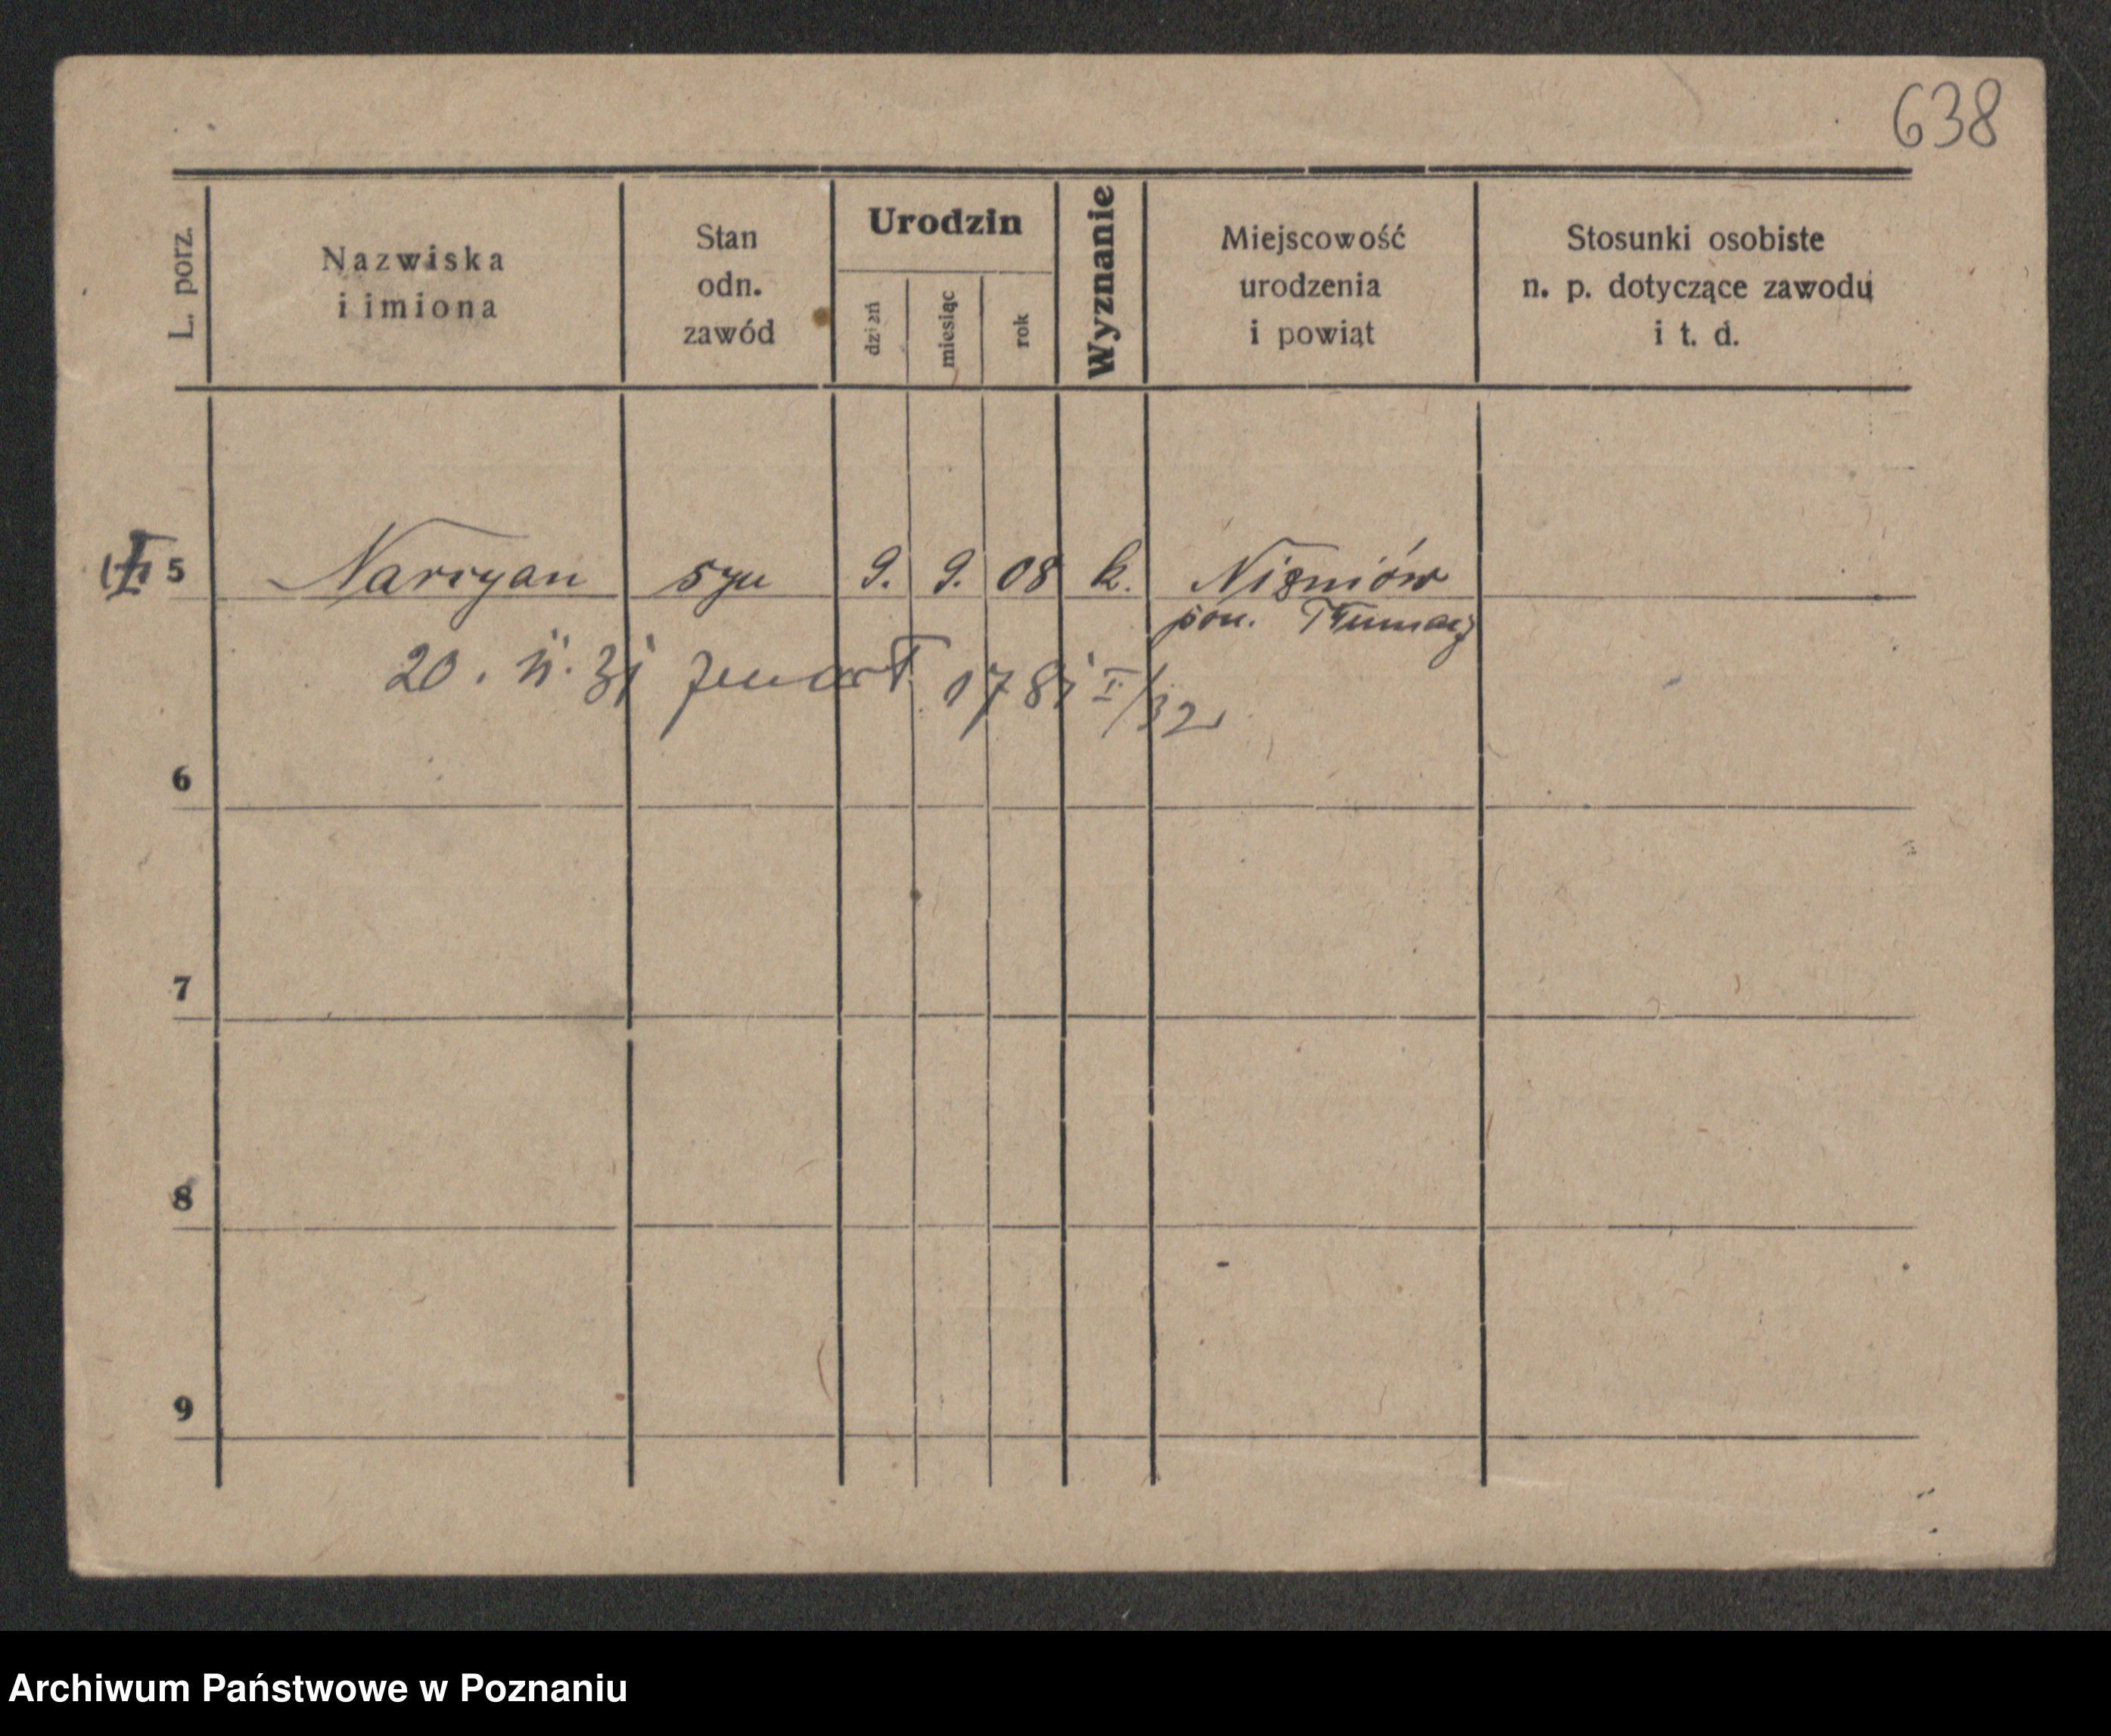 638
L. porz.
Nazwiska
i imiona
Stan
odn.
zawód
Urodzin
dzień
miesiąc
rok
Wyznanie
Miejscowość
urodzenia
i powiat
Stosunki osobiste
n. p. dotyczące zawodu
i t. d.
5 Maryan syn 9. 9. 08 k. Nizniów
pow. Tłumacz
20. 31 1781 I/32
6
7
8
9
Archiwum Państwowe w Poznaniu